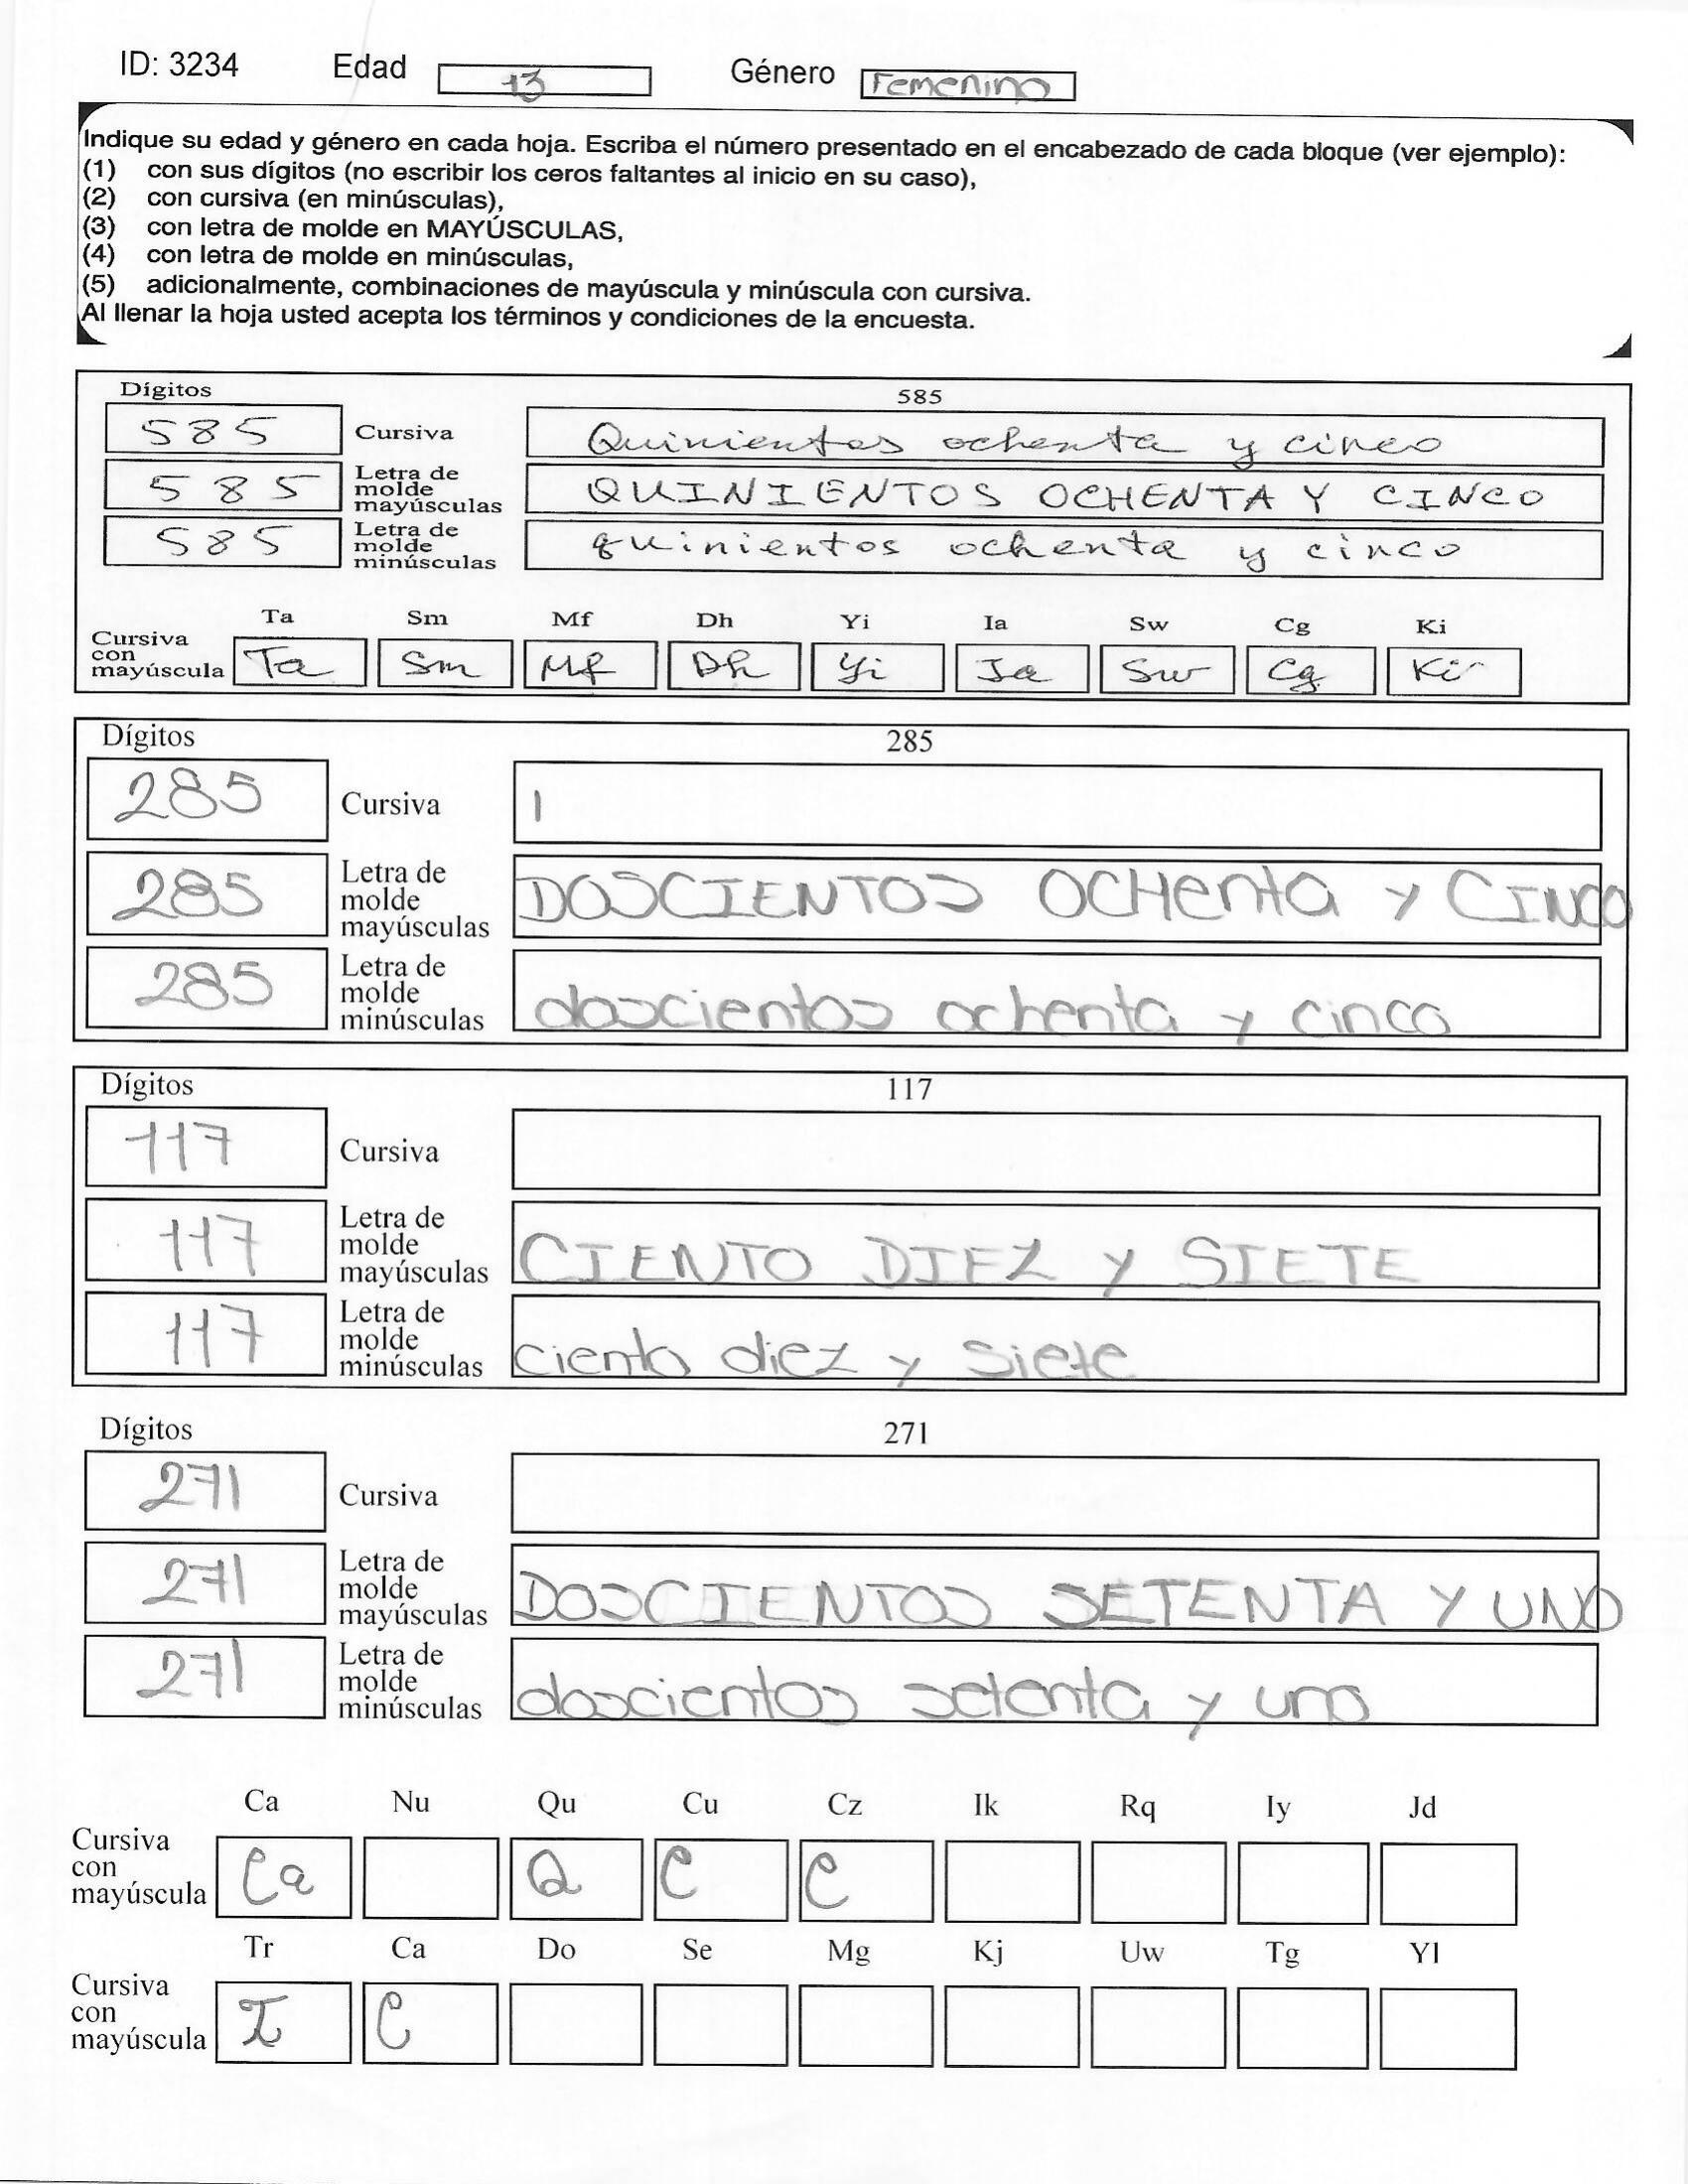 ID: 3234 Edad 13 Género Femenino
Indique su edad y género en cada hoja. Escriba el número presentado en el encabezado de cada bloque (ver ejemplo):
(1) con sus dígitos (no escribir los ceros faltantes al inicio en su caso),
(2) con cursiva (en minúsculas),
(3) con letra de molde en MAYÚSCULAS,
(4) con letra de molde en minúsculas,
(5) adicionalmente, combinaciones de mayúscula y minúscula con cursiva.
Al llenar la hoja usted acepta los términos y condiciones de la encuesta.
Dígitos 585
585 Cursiva Quinientos ochenta y cinco
585 Letra de molde mayúsculas QUINIENTOS OCHENTA Y CINCO
585 Letra de molde minúsculas quinientos ochenta y cinco
Ta Sm Mf Dh Yi Ia Sw Cg Ki
Cursiva con mayúscula Ta Sm Mf Dh Yi Ia Sw Cg Ki
Dígitos 285
285 Cursiva l
285 Letra de molde mayúsculas DOSCIENTOS OCHenta y CINCO
285 Letra de molde minúsculas doscientos ochenta y cinco
Dígitos 117
117 Cursiva
117 Letra de molde mayúsculas CIENTO DIEZ y SIETE
117 Letra de molde minúsculas ciento diez y siete
Dígitos 271
271 Cursiva
271 Letra de molde mayúsculas DOSCIENTOS SETENTA Y UNO
271 Letra de molde minúsculas doscientos setenta y uno
Ca Nu Qu Cu Cz Ik Rq Iy Jd
Cursiva con mayúscula Ca Q C C
Tr Ca Do Se Mg Kj Uw Tg Yl
Cursiva con mayúscula T C